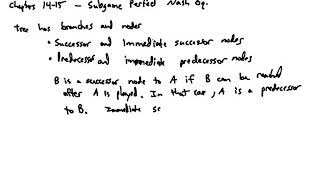 Chapters 14-15 - Subgame Perfect Nash Eq.
tree has branches and nodes
• Successor and immediate successor nodes
• Predecessor and immediate predecessor nodes
B is a successor node to A if B can be reached
after A is played. In that case, A is a predecessor
to B. Immediate sc